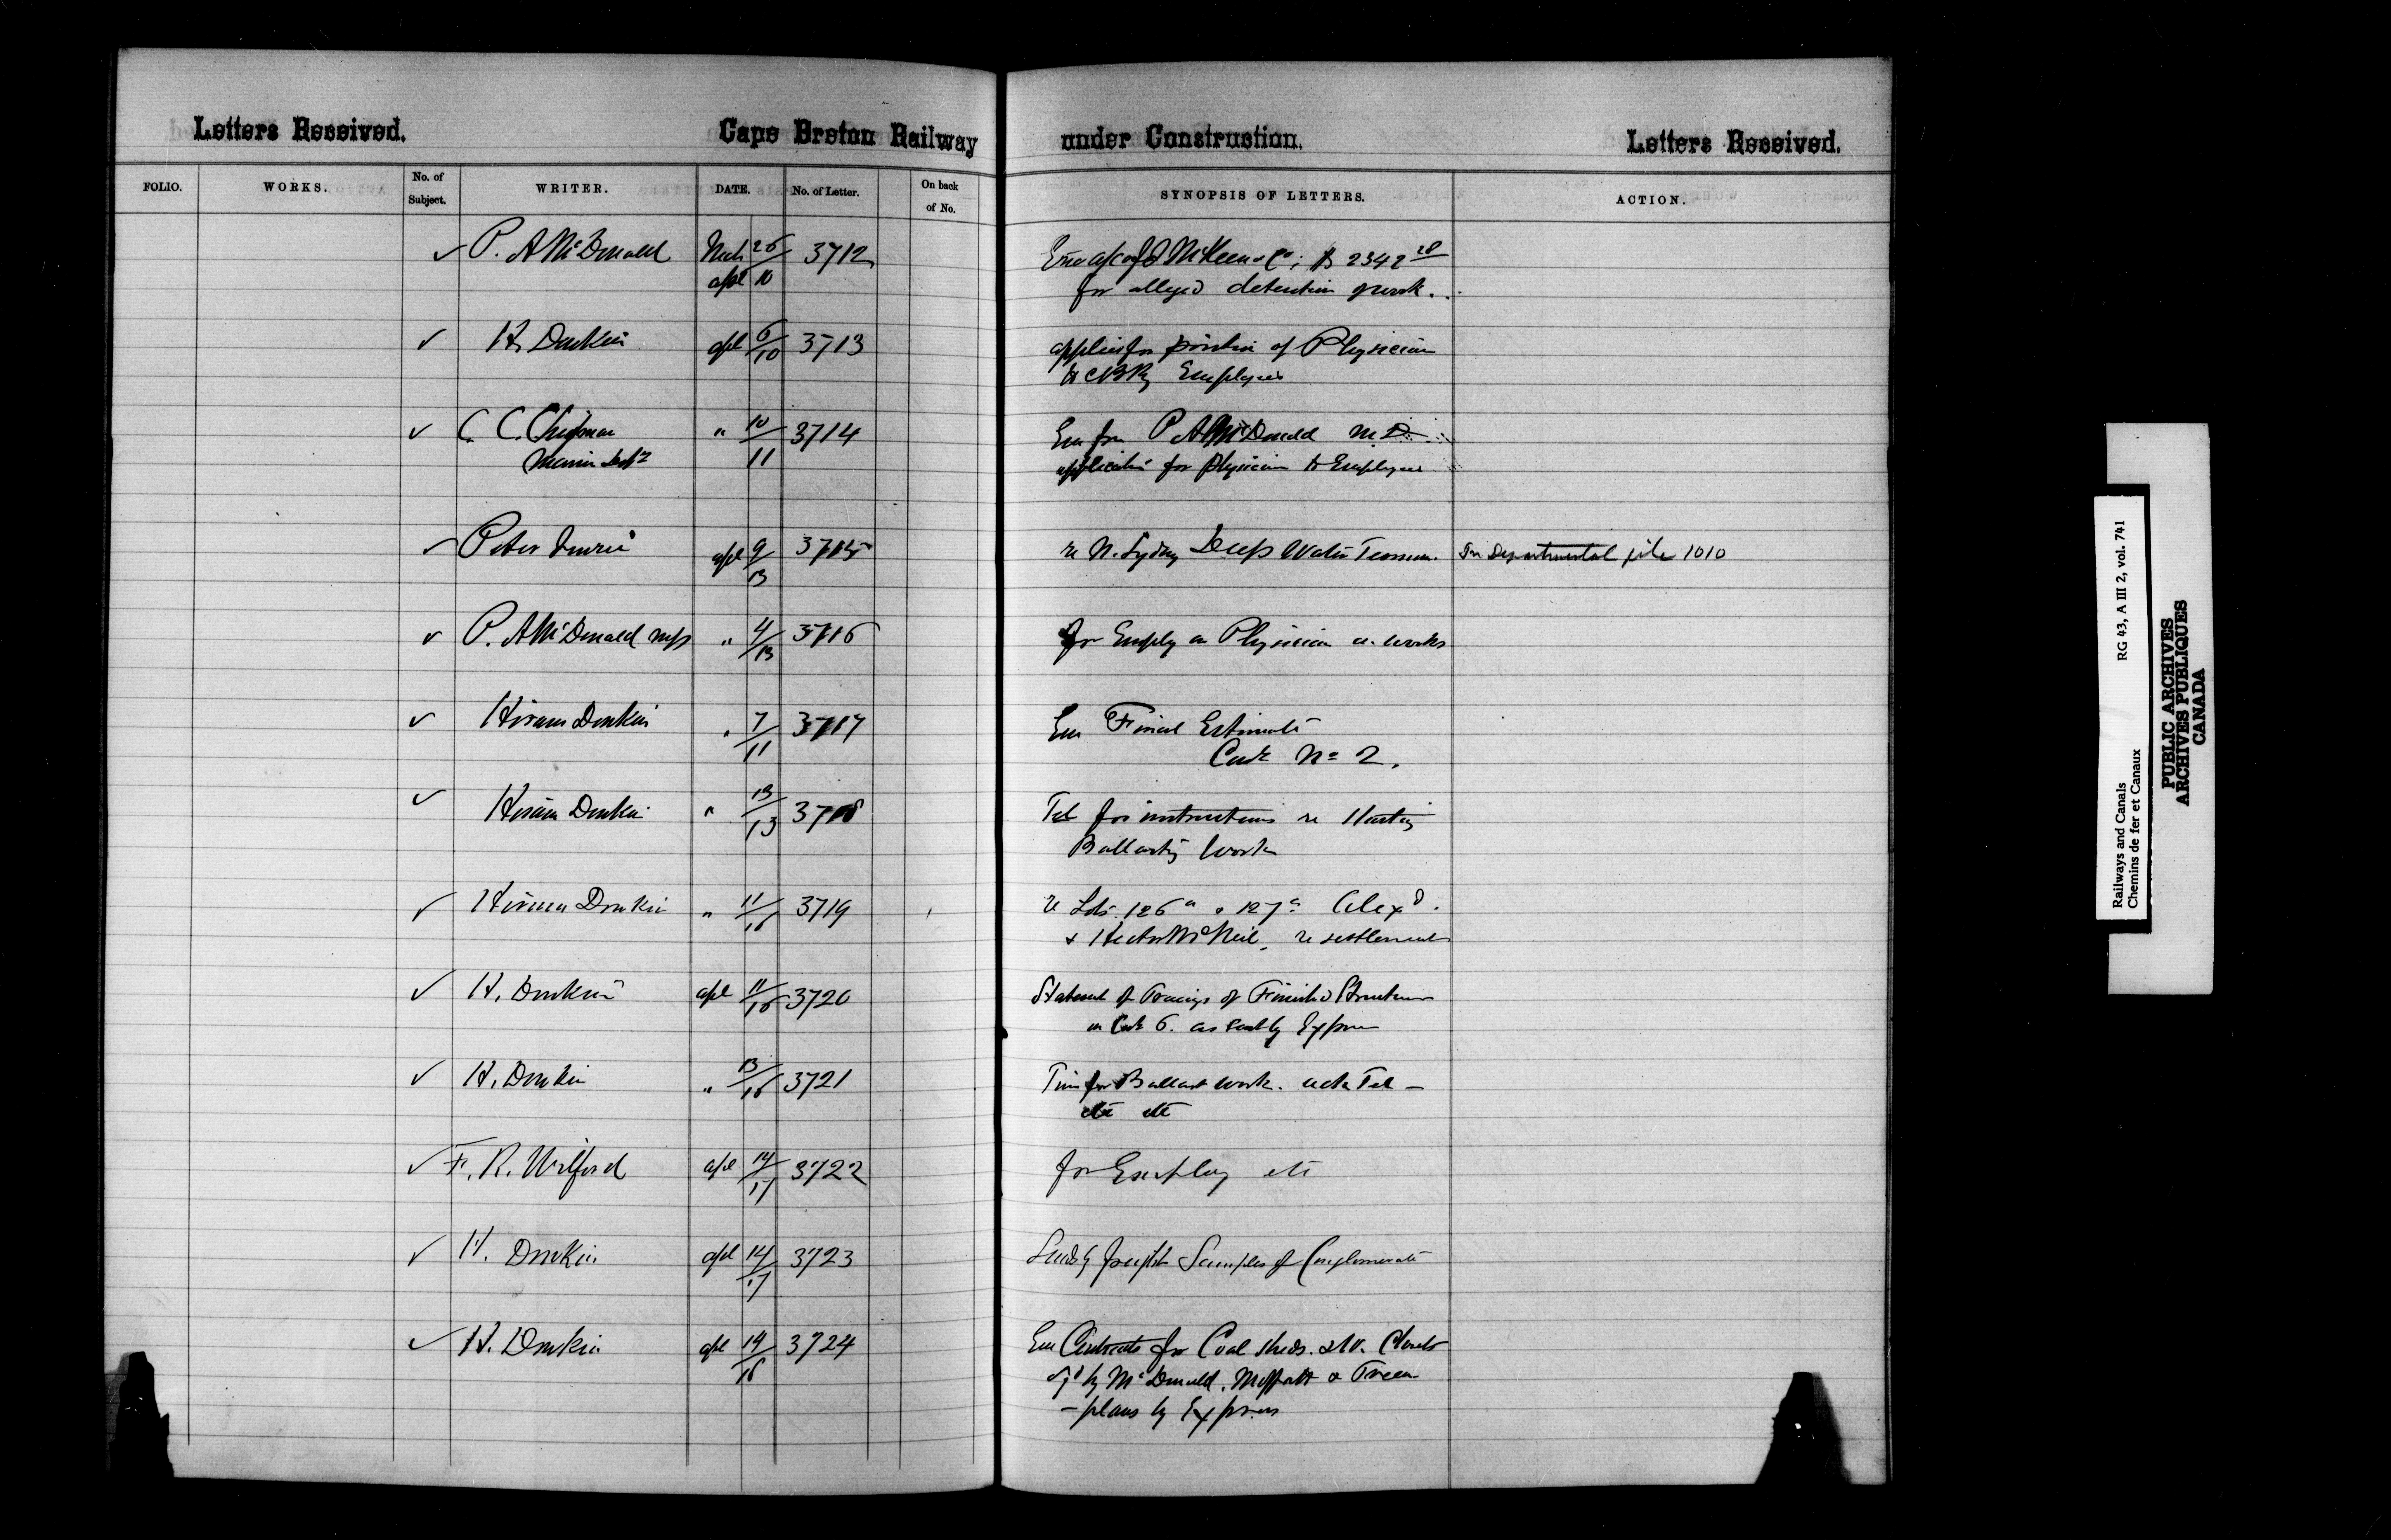 Letters Received. Cape Breton Railway under Construction. Letters Received.
FOLIO. WORKS. No. of Subject. WRITER. DATE. No. of Letter. On back of No. SYNOPSIS OF LETTERS. ACTION.
✓ P. A McDonald Mch 26 3712 McKeen & Co; $ 2342 28
apl 10 for alleged detention of work.
✓ H. Donkin apl 6/10 3713 applies for position of Physician
to CBRy Employees
✓ C. C. Chipman " 10/11 3714 Enc from P A McDonald M.D.
Marine Dept application for physician to Employees
✓ Peter apl 9/13 3715 re N. Sydney Deep Water Termin. In Departmental file 1010
✓ P. A McDonald " 4/13 3716 for Employ as Physician on works
✓ Hiram Donkin " 7/11 3717 Enc Final Estimate
Cont No 2.
✓ Hiram Donkin " 13/13 3718 Tel for instructions re
Ballasting Work
✓ Hiram Donkin " 11/16 3719 re Lots 126a & 127a Alexd.
& Hector McNeil, re settlement
✓ H. Donkin apl 11/16 3720 Statement of Tracings of Finished Structures
on Cont 6. as sent by Express
✓ H. Donkin " 13/16 3721 Time for Ballast work. Tel —
etc etc
✓ F. R. Wilford apl 14/17 3722 for Employ etc
✓ H. Donkin apl 14/17 3723 Sends by freight Samples of Conglomerate
✓ H. Donkin apl 14/16 3724 Enc Contracts for Coal sheds. Closets
by McDonald, Moffatt &
— plans by Express
Railways and Canals RG 43, A III 2, vol. 741
Chemins de fer et Canaux
PUBLIC ARCHIVES
ARCHIVES PUBLIQUES
CANADA